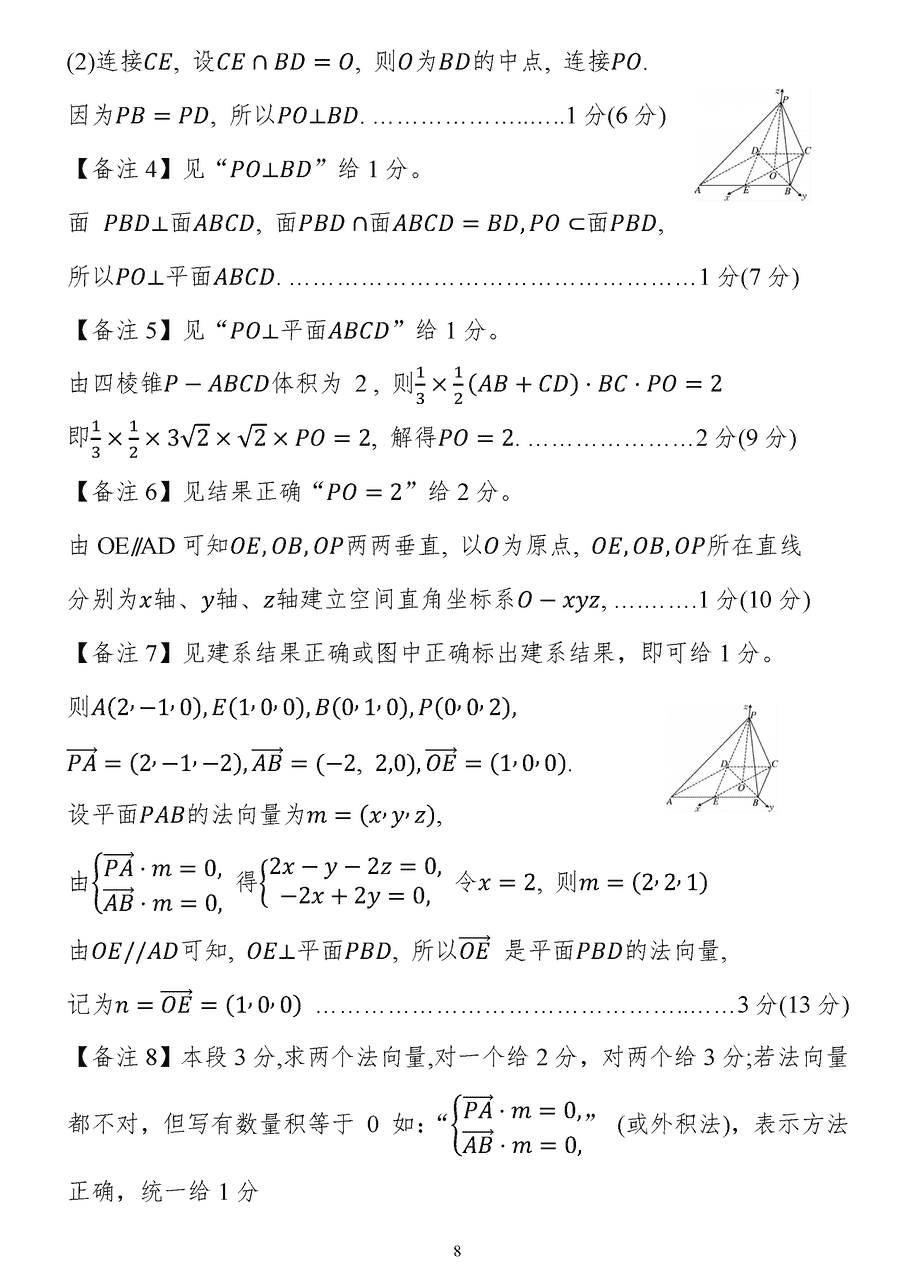 (2)连接CE, 设CE ∩ BD = O, 则O为BD的中点, 连接PO.
因为PB = PD, 所以PO⊥BD. ………………..…..1 分(6 分)
【备注 4】见“PO⊥BD”给 1 分。
面 PBD⊥面ABCD, 面PBD ∩面ABCD = BD, PO ⊂面PBD,
所以PO⊥平面ABCD. ……………………………………………1 分(7 分)
z
P
D
C
O
A
E
B
x
y
【备注 5】见“PO⊥平面ABCD”给 1 分。
由四棱锥P − ABCD体积为 2 , 则1/3 × 1/2 (AB + CD) · BC · PO = 2
即1/3 × 1/2 × 3√2 × √2 × PO = 2, 解得PO = 2. …………………2 分(9 分)
【备注 6】见结果正确“PO = 2”给 2 分。
由 OE//AD 可知OE, OB, OP两两垂直, 以O为原点, OE, OB, OP所在直线
分别为x轴、y轴、z轴建立空间直角坐标系O − xyz, ….…….1 分(10 分)
【备注 7】见建系结果正确或图中正确标出建系结果，即可给 1 分。
则A(2, −1, 0), E(1, 0, 0), B(0, 1, 0), P(0, 0, 2),
PA⃗ = (2, −1, −2), AB⃗ = (−2, 2,0), OE⃗ = (1, 0, 0).
设平面PAB的法向量为m = (x, y, z),
z
P
D
C
O
A
E
B
x
y
由{PA⃗ · m = 0, AB⃗ · m = 0, 得{2x − y − 2z = 0, −2x + 2y = 0, 令x = 2, 则m = (2, 2, 1)
由OE//AD可知, OE⊥平面PBD, 所以OE⃗ 是平面PBD的法向量,
记为n = OE⃗ = (1, 0, 0) ………………………………………..……3 分(13 分)
【备注 8】本段 3 分,求两个法向量,对一个给 2 分，对两个给 3 分;若法向量
都不对，但写有数量积等于 0 如：“{PA⃗ · m = 0, AB⃗ · m = 0,” (或外积法)，表示方法
正确，统一给 1 分
8